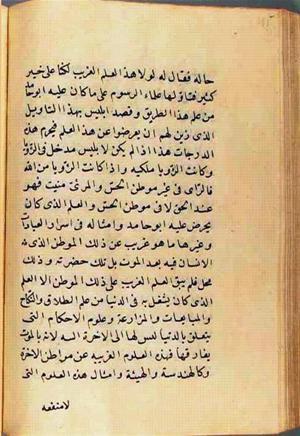 حاله فقال له لولا هذا العلم الغريب لكنا على خير
كثير فتاولها علماء الرسوم على ما كان عليه ابو حامد
من علم هذا الطريق وقصد ابليس بهذا التاويل
الذى زين لهم ان يعرضوا عن هذا العلم فيحرموا هذه
الدرجات هذا اذا لم يكن لابليس مدخل فى الرؤيا
وكانت الرؤيا ملكيه واذا كانت الرؤيا من الله
فالرائى فى غير موطن الحس والمرئى ميت فهو
عند الحق لا فى موطن الحس والعلم الذى كان
يحرض عليه ابو حامد وامثاله فى اسرار العبادات
وغيرها ما هو غريب عن ذلك الموطن الذى
الانسان فيه بعد الموت بل تلك حضرته وذلك
محل فلم يبق العلم الغريب على ذلك الموطن الا العلم
الذى كان يشتغل به فى الدنيا من علم الطلاق والنكاح
والمبايعات والمزارعة وعلوم الاحكام التى
يتعلق بالدنيا ليس لها الى الاخرة السه لانه بالموت
يفارقها فهذه العلوم الغريبه عن مواطن الاخرة
وكالهندسة والهيئة وامثال هذه العلوم التى
لا منفعه